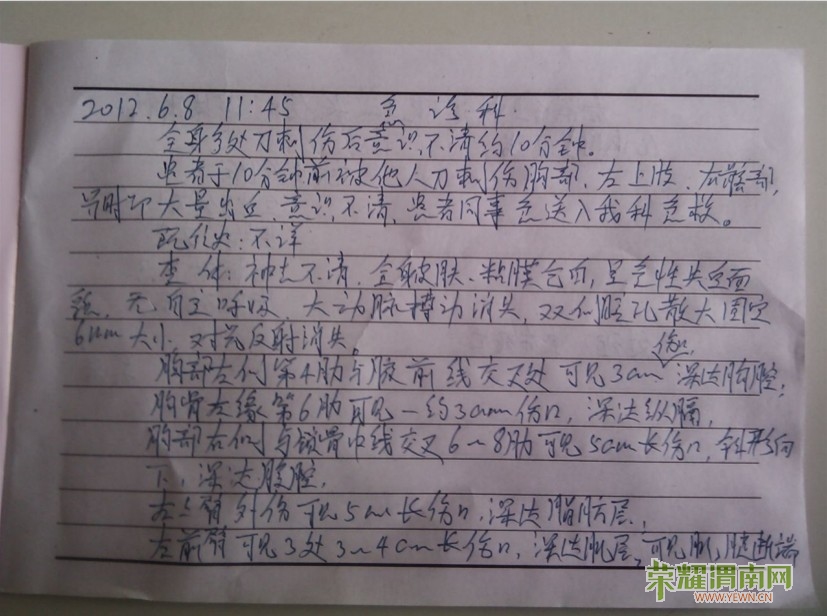 2012.6.8 11:45 急诊科.
全身多处刀刺伤后意识不清约10分钟。
患者于10分钟前被他人刀刺伤胸部、左上肢、右髂部,
当时即大量出血,意识不清,患者同事急送入我科急救。
既往史:不详
查体:神志不清,全身皮肤、粘膜苍白,呈急性失血面
貌,无自主呼吸,大动脉搏动消失,双侧瞳孔散大固定
6mm大小,对光反射消失。
胸部左侧第4肋与腋前线交叉处可见3cm伤口深达胸腔;
胸骨左缘第6肋可见一约3cm伤口,深达纵膈,
胸部右侧与锁骨中线交叉6~8肋可见5cm长伤口,斜形向
下,深达腹腔,
左上臂外侧可见5cm长伤口,深达脂肪层,
左前臂可见3处3~4cm长伤口,深达肌层,可见肌腱断端
荣耀渭南网
WWW.YEWN.CN